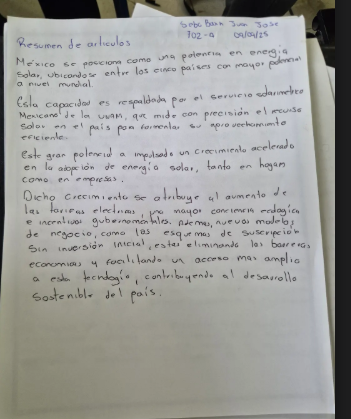 Juan Jose
702-A 09/09/25
Resumen de articulos
México se posiciona como una potencia en energia
Solar, ubicandose entre los cinco países con mayor potencial
a nivel mundial.
Esta capacidad es respaldada por el servicio solarimetrico
Mexicano de la UNAM, que mide con precisión el recurso
Solar en el país para fomentar su aprovechamiento
eficiente.
Este gran potencial a impulsado un crecimiento acelerado
en la adopción de energía solar, tanto en hogares
como en empresas.
Dicho crecimiento se atribuye al aumento de
las tarifas electricas, una mayor conciencia ecologica
e incentivos gubernamentales. Ademas, nuevos modelos
de negocio, como los esquemas de suscripción
Sin inversión inicial, estan eliminando las barreras
economicas y facilitando un acceso mas amplio
a esta tecnologia, contribuyendo al desarrollo
Sostenible del país.